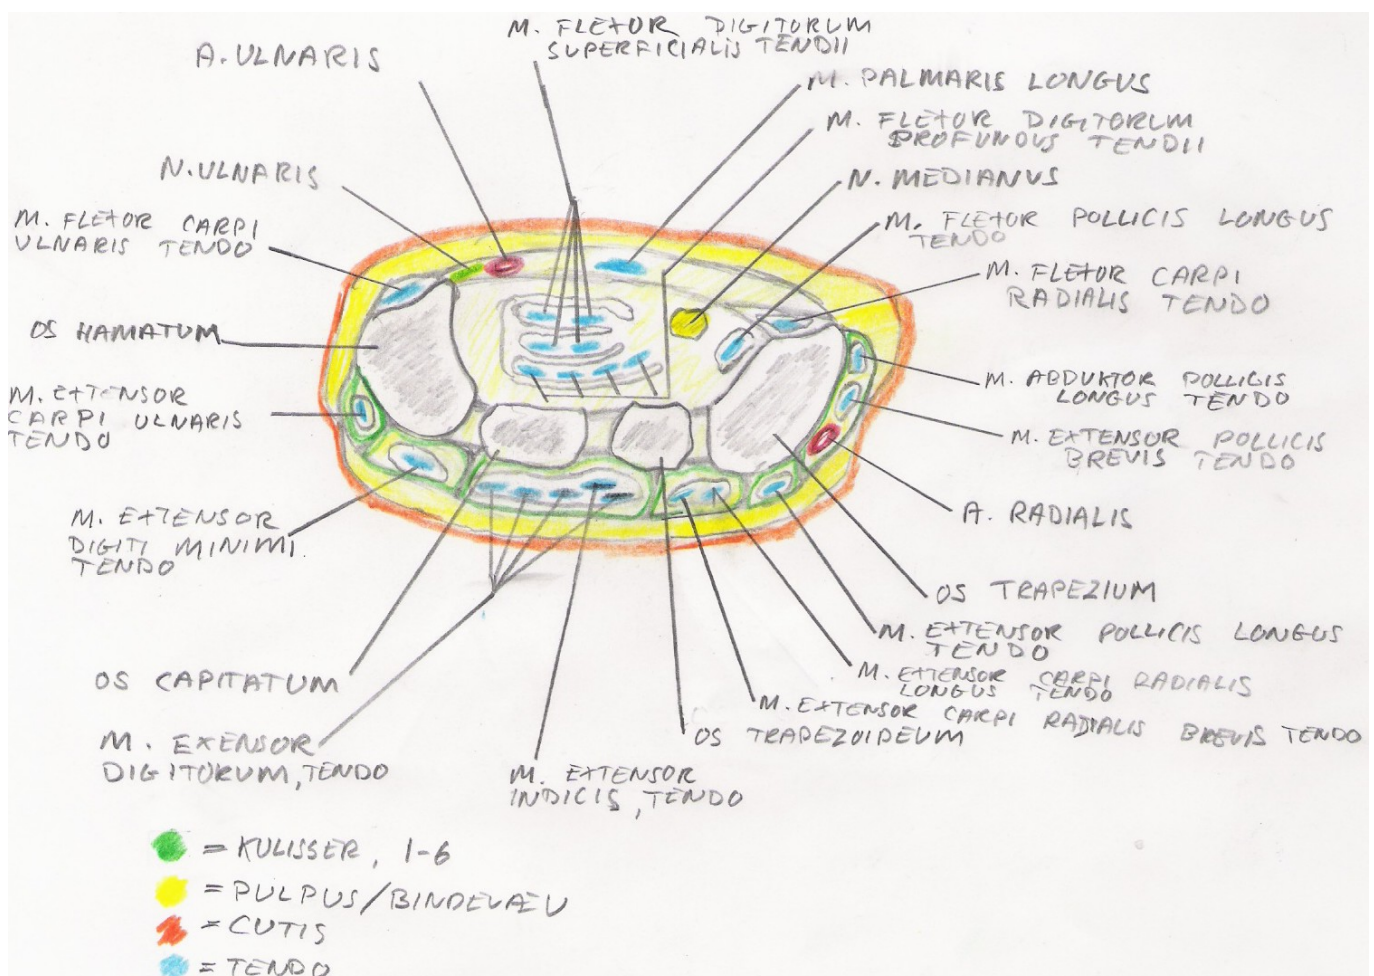 M. FLEXOR DIGITORUM
SUPERFICIALIS TENDII
A. ULNARIS
M. PALMARIS LONGUS
M. FLEXOR DIGITORUM
PROFUNDUS TENDII
N. ULNARIS
N. MEDIANUS
M. FLEXOR CARPI
ULNARIS TENDO
M. FLEXOR POLLICIS LONGUS
TENDO
M. FLEXOR CARPI
RADIALIS TENDO
OS HAMATUM
M. ABDUKTOR POLLICIS
LONGUS TENDO
M. EXTENSOR
CARPI ULNARIS
TENDO
M. EXTENSOR POLLICIS
BREVIS TENDO
A. RADIALIS
M. EXTENSOR
DIGITI MINIMI.
TENDO
OS TRAPEZIUM
M. EXTENSOR POLLICIS LONGUS
TENDO
OS CAPITATUM
M. EXTENSOR CARPI RADIALIS
LONGUS TENDO
M. EXTENSOR CARPI RADIALIS BREVIS TENDO
OS TRAPEZOIDEUM
M. EXENSOR
DIGITORUM, TENDO
M. EXTENSOR
INDICIS, TENDO
= KULISSER, 1-6
= PULPUS/BINDEVÆV
= CUTIS
= TENDO